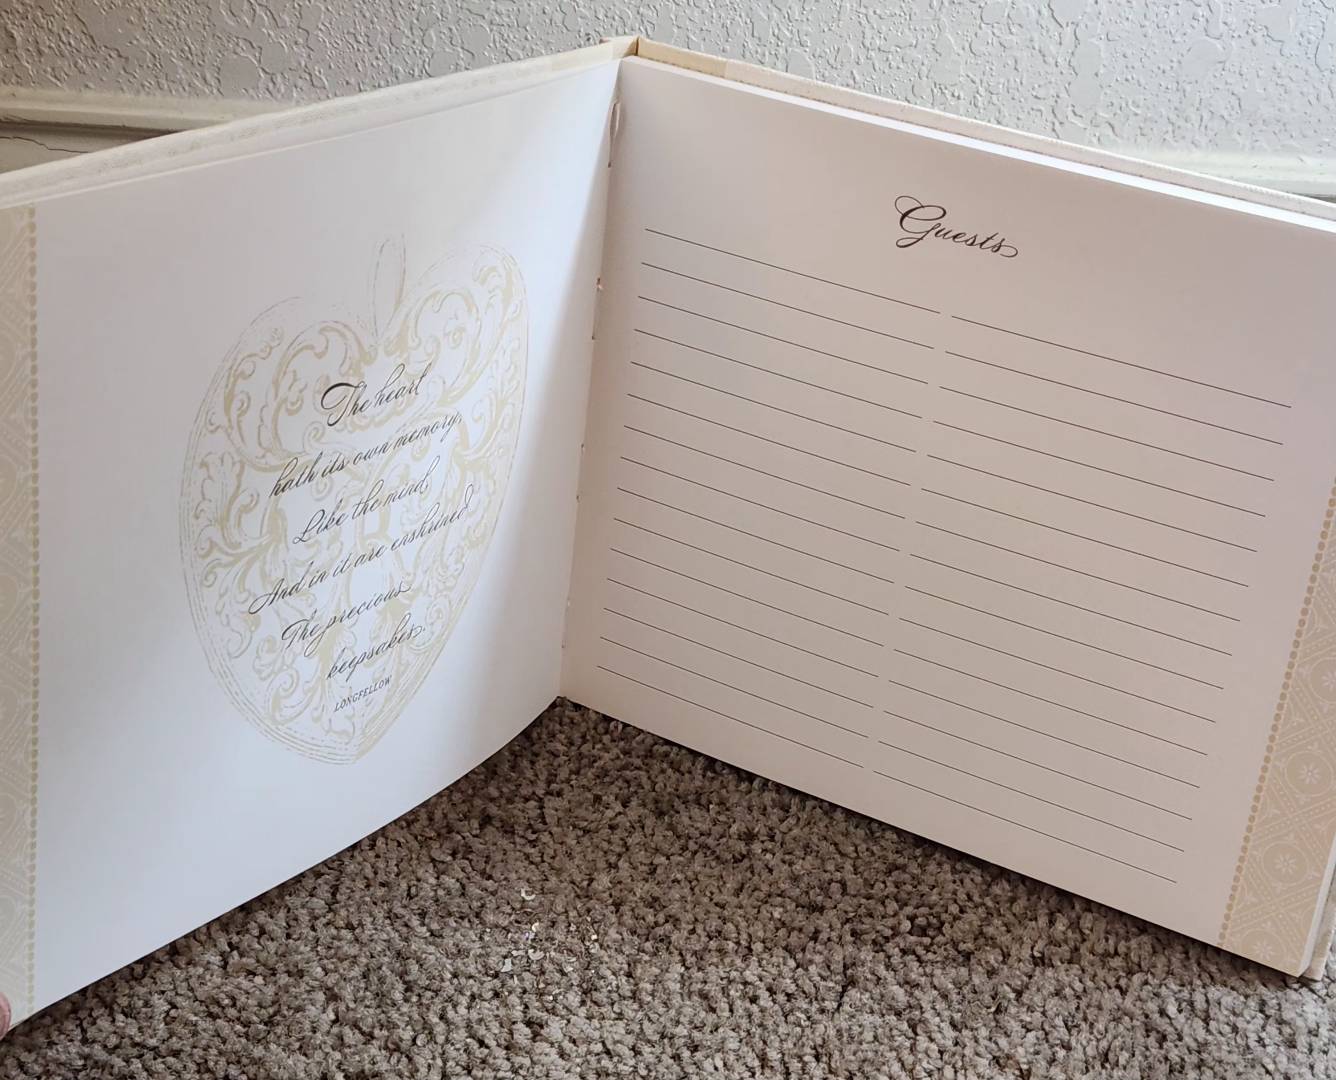 The heart
hath its own memory,
Like the mind,
And in it are enshrined
The precious
keepsakes.
LONGFELLOW
Guests